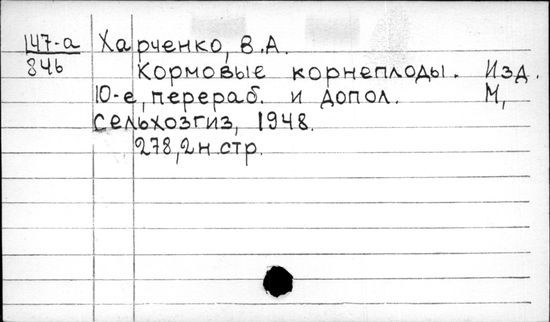 147-а Харченко, В.А.
846 Кормовые корнеплоды. Изд.
10-е, перераб. и допол. М,
Сельхозгиз, 1948.
278,2н.стр.